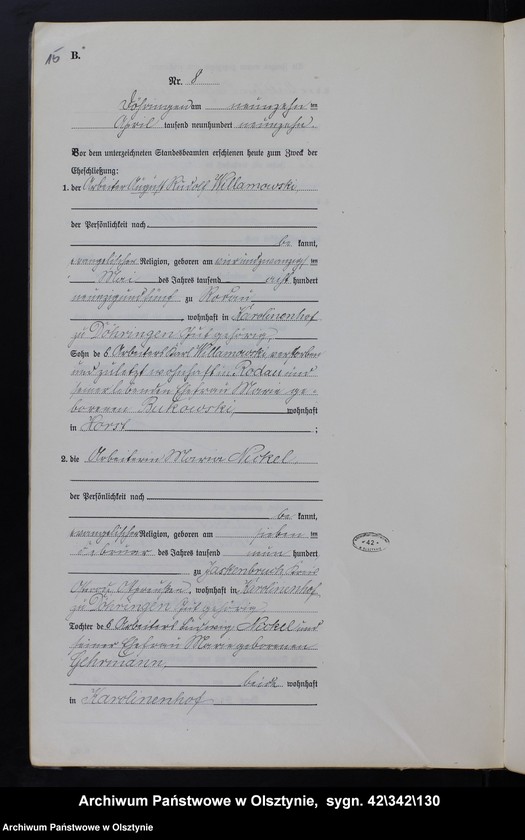 16 B.
Nr. 8
Döhringen am neunzehn ten
April tausend neunhundert neunzehn.
Vor dem unterzeichneten Standesbeamten erschienen heute zum Zweck der
Eheschließung:
1. der Arbeiter August Rudolf Willamowski,
der Persönlichkeit nach
be kannt,
evangelischer Religion, geboren am vierundzwanzig ten
Mai des Jahres tausend acht hundert
neunzigundfünf zu
, wohnhaft in Karolinenhof
zu Döhringen Gut gehörig,
Sohn des Arbeiters Karl Willamowski verstorben
und zuletzt wohnhaft in Rodau und
seiner lebenden Ehefrau Marie ge-
borenen Bukowski, wohnhaft
in Horst ;
2. die Arbeiterin Maria Nickel
der Persönlichkeit nach
be kannt,
evangelischer Religion, geboren am sieben ten
Februar des Jahres tausend neun hundert
zu Jaskenbruch Kreis
Osterode Ostpreußen, wohnhaft in Karolinenhof
zu Döhringen Gut gehörig,
Tochter des Arbeiters Ludwig Nickel und
seiner Ehefrau Marie geborenen
Gehrmann,
beide wohnhaft
in Karolinenhof
42
Archiwum Państwowe w Olsztynie, sygn. 42\342\130
Archiwum Państwowe w Olsztynie